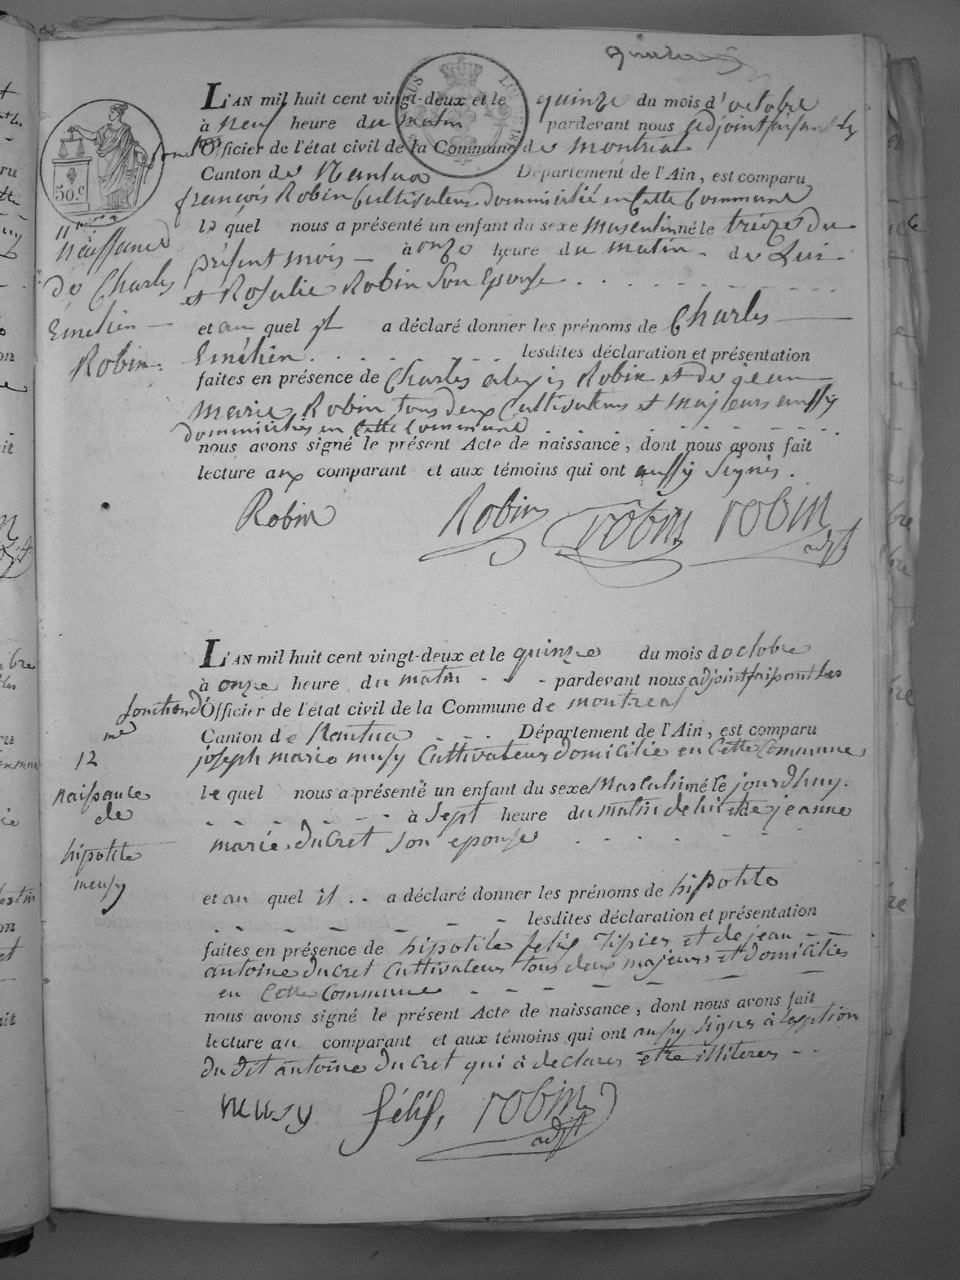 quinze
L'AN mil huit cent vingt-deux et le quinze du mois d'octobre
à neuf heure du matin pardevant nous adjoint faisant les
fonc Officier de l'état civil de la Commune de montreal
Canton de Nantua Département de l'Ain, est comparu
françois Robin Cultivateur domicilié en Cette Commune
le quel nous a présenté un enfant du sexe masculin né le treize du
présent mois à onze heure du matin de Lui
et Rosalie Robin Son Epouse
et au quel il a déclaré donner les prénoms de Charles
Emélien lesdites déclaration et présentation
faites en présence de Charles alexis Robin et de jean
marie Robin tous deux Cultivateurs et majeurs aussy
domiciliés en Cette Commune
nous avons signé le présent Acte de naissance, dont nous avons fait
lecture aux comparant et aux témoins qui ont aussy Signés.
50.c
11
Naissance
de Charles
Emélien
Robin.
Robin Robin robin robin
adjt
L'AN mil huit cent vingt-deux et le quinze du mois d octobre
à onze heure du matin pardevant nous adjoint faisant Les
fonctions d Officier de l'état civil de la Commune de montreal
Canton de Nantua Département de l'Ain, est comparu
joseph marie musy Cultivateur domicilié en Cette Commune
le quel nous a présenté un enfant du sexe Masculin né le jourdhuy.
à Sept heure du matin de lui et de jeanne
marie ducret Son epouse
et au quel il a déclaré donner les prénoms de hipolite
lesdites déclaration et présentation
faites en présence de hipolite felix et de jean
antoine ducret Cultivateur tous deux majeurs et domiciliés
en Cette Commune
nous avons signé le présent Acte de naissance, dont nous avons fait
lecture au comparant et aux témoins qui ont aussy Signés à lexption
du dit antoine ducret qui à declarer etre illiteres
12
naissance
de
hipolite
meusy
meusy félix, robin
adjt